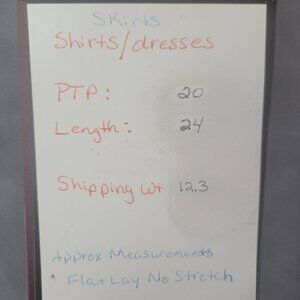 Skirts
Shirts/dresses
PTP: 20
Length: 24
Shipping Wt 12.3
Approx Measurements
Flat Lay No Stretch